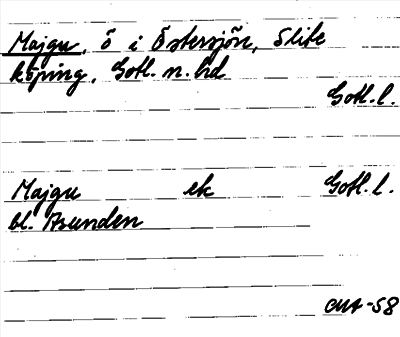 Majgu, ö i Östersjön, Slite
köping, Gotl. n. hd
Gotl. l.
Majgu ek Gotl. l.
bl. Asunden
-58